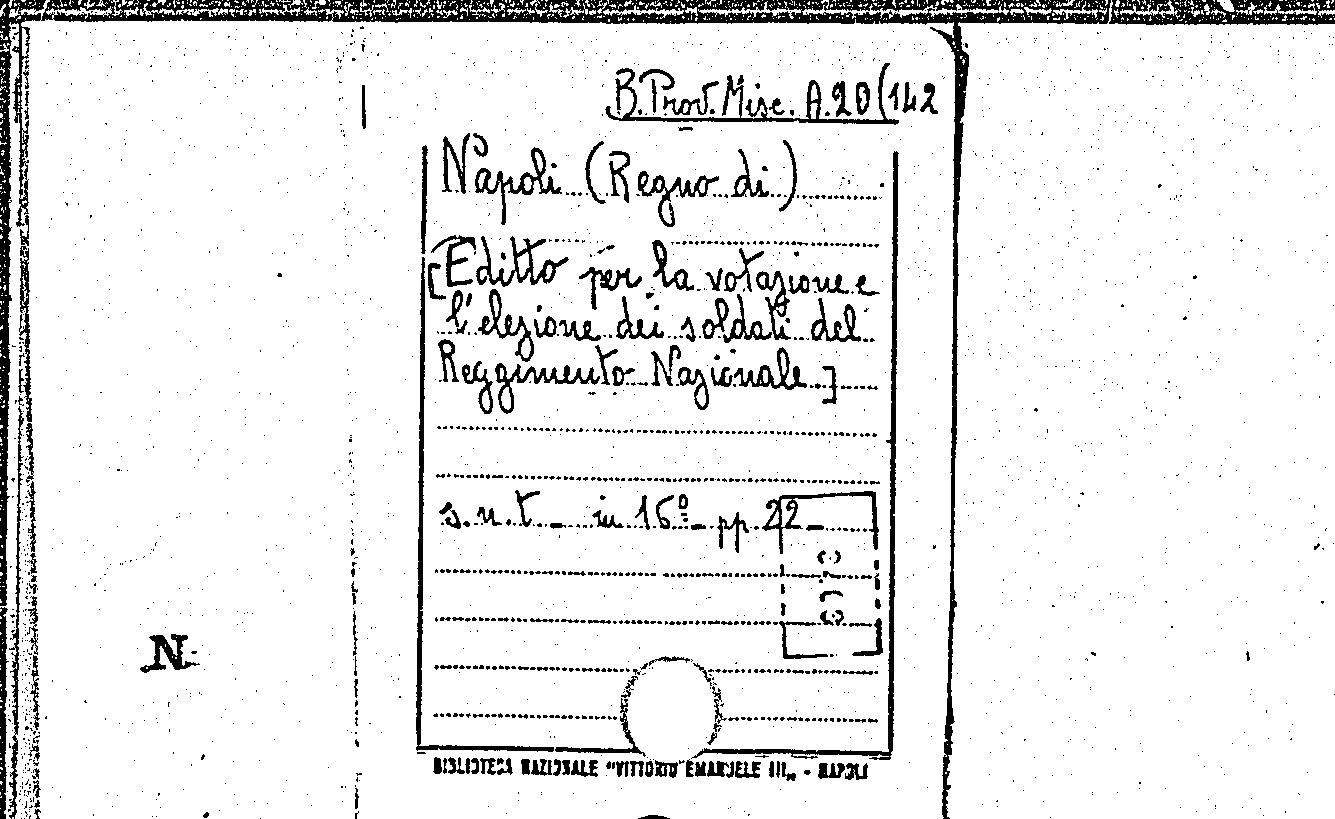 B. Prov. Misc. A.20(142
Napoli (Regno di)
[Editto per la votazione e
l'elezione dei soldati del
Reggimento Nazionale]
s.n.t _ in 16º _ pp 22 _
N
BIBLIOTECA NAZIONALE "VITTORIO EMANUELE III„ - NAPOLI